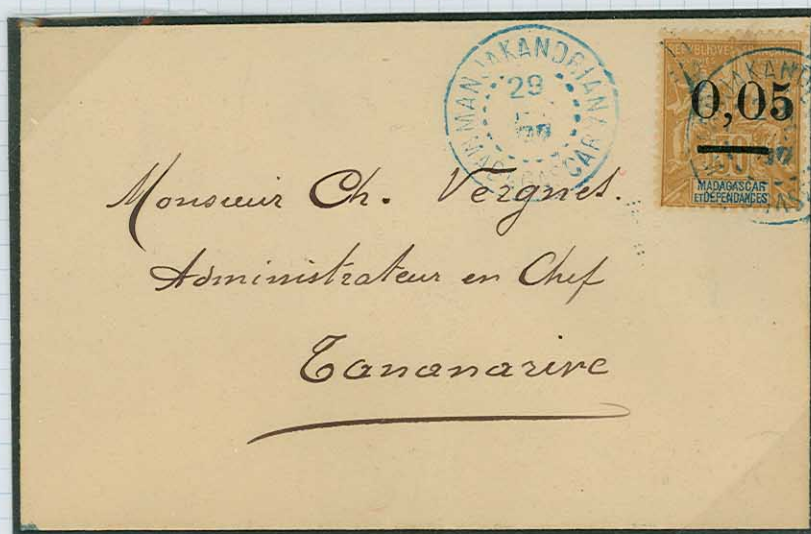 MANJAKANDRIANA
29
MADAGASCAR
RÉPUBLIQUE
0,05
MADAGASCAR
ET DÉPENDANCES
Monsieur Ch. Vergnes.
Administrateur en Chef
Tananarive